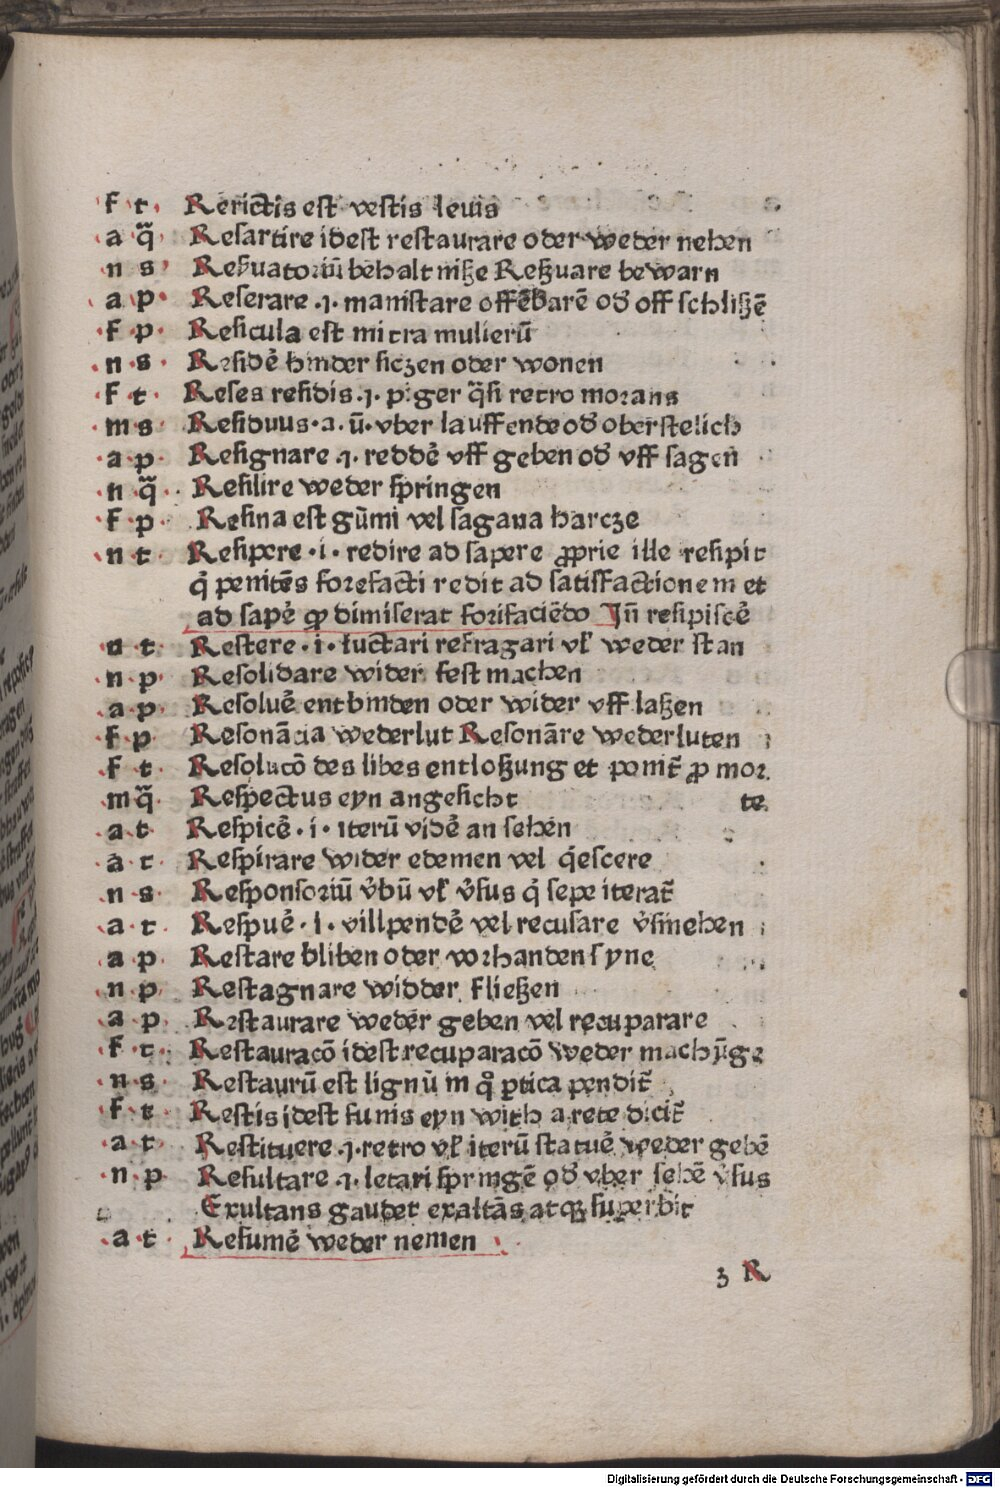 f t Rerictis est vestis leuis
a q̃ Resartire idest restaurare oder weder nehen
n s Reẜuatoriū behaltniße Reẜuare bewarn
a p Reserare .i. manistare offēbarē od̕ off schlißē
f p Resicula est mitra mulierū
n s Residē hinder siczen oder wonen
f t Reses residis .i. piger q̃si retro morans
m s Residuus . a . ū . vber lauffende od̕ oberstelich
a p Resignare .i. reddē vff geben od̕ vff sagen
n q̃ Resilire weder springen
f p Resina est gūmi vel sagana harcze
n t Resipere . i . redire ad sapere ꝓprie ille resipit
q̕ penitēs forefacti redit ad satisfactionem et
ad sapē qđ dimiserat forifaciēdo Jn̄ resipiscē
n t Restere . i . luctari refragari vł weder stan
n p Resolidare wider fest machen
a p Resoluē entbinden oder wider vff laßen
f p Resonācia wederlut Resonāre wederluten
f t Resolucō des libes entloßung et ponit̃ ꝓ mor
m q̃ Respectus eyn angesicht te
a t Respicē . i . iterū vidē an sehen
a t Respirare wider edemen vel q̕escere
n s Responsoriū v̕bū vł v̕sus q̕ sepe iterat̃
a t Respuē . i . villpendē vel recusare v̕smehen
a p Restare bliben oder vorhanden syne
n p Restagnare widder fließen
a p Restaurare weder geben vel recuparare
f t Restauracō idest recuparacō weder machūge
n s Restaurū est lignū in q̊ ꝑtica pendit̃
f t Restis idest funis eyn with a rete dicit̃
a t Restituere .i. retro vł iterū statuē weder gebē
n p Resultare .i. letari springē od̕ vber sehē v̕sus
Exultans gaudet exaltās atqꝫ superbit
a t Resumē weder nemen
3 R
Digitalisierung gefördert durch die Deutsche Forschungsgemeinschaft - DFG